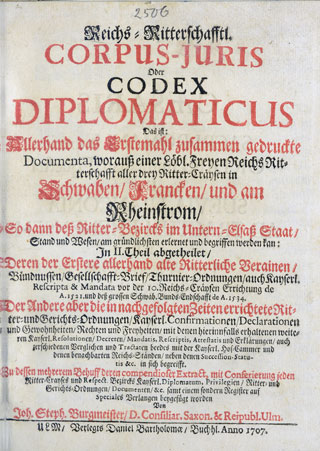 2506
Reichs-Ritterschafftl.
CORPUS-JURIS
Oder
CODEX
DIPLOMATICUS
Das ist:
Allerhand das Erstemahl zusammen gedruckte
Documenta, worauß einer Löbl. Freyen Reichs Rit-
terschafft aller drey Ritter-Cräysen in
Schwaben/ Francken/ und am
Rheinstrom/
So dann deß Ritter-Bezircks im Untern-Elsaß Staat/
Stand und Wesen/ am gründlichsten erlernet und begriffen werden kan:
In II. Theil abgetheilet/
Deren der Erstere allerhand alte Ritterliche Verainen/
Bündnussen/ Gesellschafft-Brief/ Thurnier-Ordnungen/ auch Kayserl.
Rescripta & Mandata vor der 10. Reichs-Cräysen Errichtung de
A. 1521. und deß grossen Schwäb. Bunds-Endschafft de A. 1534.
Der Andere aber die in nachgefolgten Zeiten errichtete Rit-
ter- und Gerichts-Ordnungen/ Kayserl. Confirmationen/ Declarationen
und Gewohnheiten/ Rechten und Freyheiten/ mit denen hierinnfalls erhaltenen weite-
ren Kayserl. Resolutionen/ Decreten/ Mandatis, Rescriptis, Attestatis und Erklärungen/ auch
verschiedenen Verglichen und Tractaten beedes mit der Kayserl. Hof-Cammer und
denen benachbarten Reichs-Ständen/ neben denen Succession-Statu-
tis &c. in sich begreifft.
Zu dessen mehrerem Behuff deren compendioser Extract, mit Conserierung jeden
Ritter-Crayses und Respect. Bezircks Kayserl. Diplomatum, Privilegien/ Ritter- und
Gerichts-Ordnungen/ Documenten/ &c. samt einem sondern Register auf
Speciales Verlangen beygefügt worden
Von
Joh. Steph. Burgmeister/ D. Consiliar. Saxon. & Reipubl. Ulm.
ULM, Verlegts Daniel Bartholomæ, Buchhl. Anno 1707.